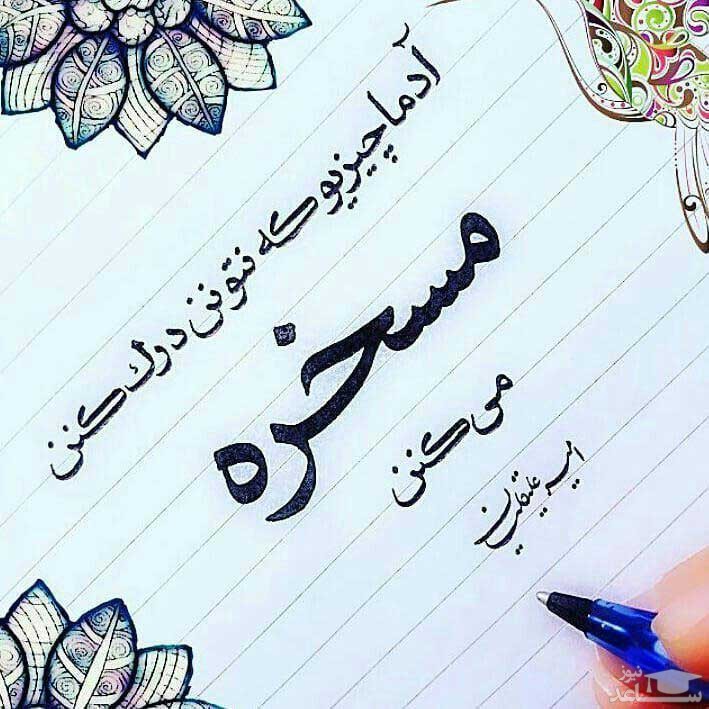 آدما چیزیو که نتونن درک کنن
مسخره
می کنن
امیر علیقلیان
نیوز
ساعد